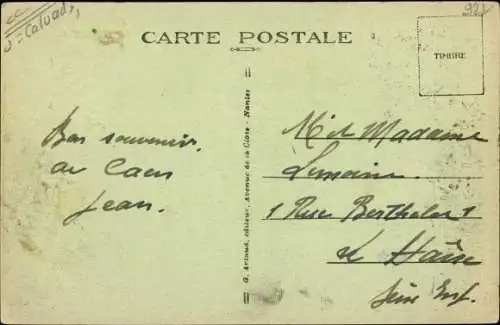 Calvados
922
CARTE POSTALE
TIMBRE
Bon souvenir.
de Caen
Jean.
G. Artaud, éditeur, Avenue de la Close - Nantes
M. et Madame
Lemoine.
1 Rue Berthelot 1
Le Hâvre
Seine Inf.